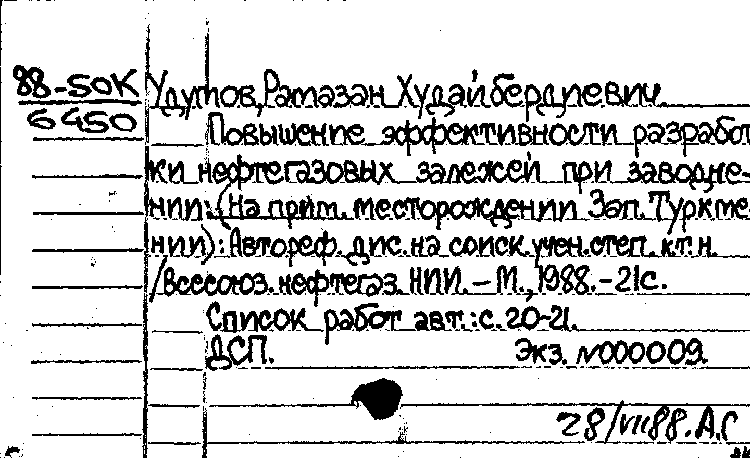 88-50К
6450
Удутов, Рамазан Худайбердиевич.
Повышение эффективности разработ
ки нефтегазовых залежей при заводне-
нии: (На прим. месторождении Зап. Туркме
нии): Автореф. дис. на соиск. учен. степ. к.т.н.
/Всесоюз. нефтегаз. НИИ. - М., 1988. - 21с.
Список работ авт.: с. 20-21.
ДСП. Экз. N000009.
28/VII88. А.С